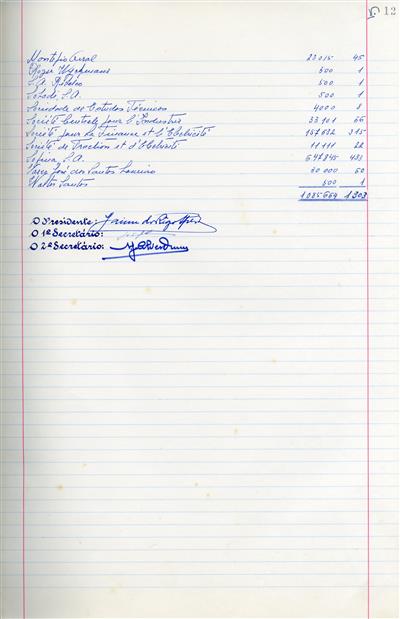 12
Montepio Geral 23 015 45
Roger Wyckmans 500 1
S.A. 500 1
Sotade, S.A. 500 1
Sociedade de Estudos Técnicos 4000 8
Société Centrale pour l'Industrie 33 101 66
Société pour la Finance et l'Electricité 157 682 315
Société de Traction et d'Electricité 11 111 22
Sofina, S.A. 433
José dos Santos 30 000 60
Walter Santos 500 1
1 303
O Presidente:
O 1º Secretário:
O 2º Secretário: